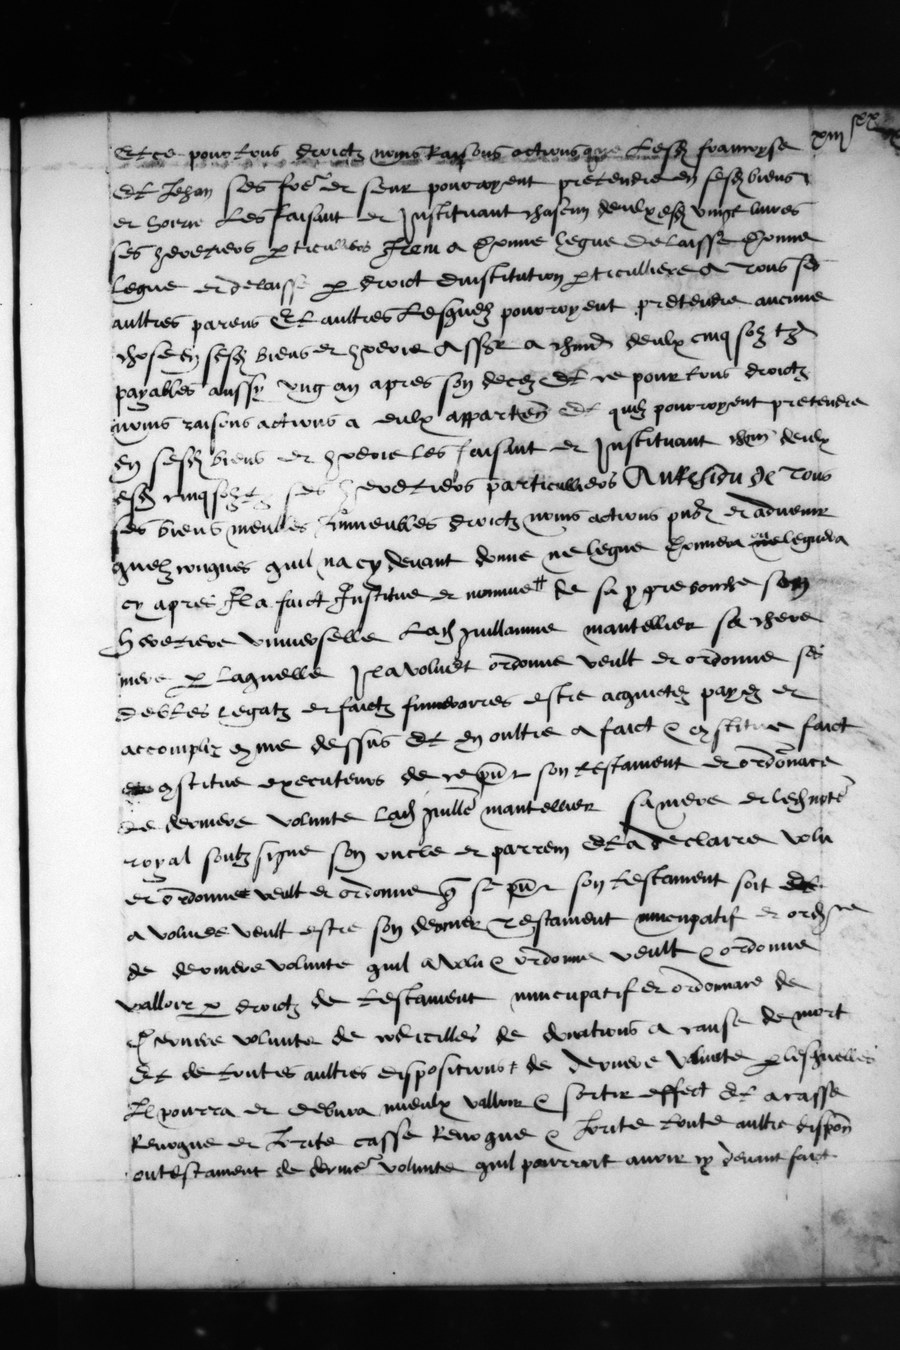 xiii xx
Et ce pour tous droictz noms raisons actions que lesd francoyse
et Jehan ses frere et seur pourroyent pretendre en sesd biens
et hoerie les faisant et Instituant chascun deulx esd vingt livres
ses heretiers particuliers Item a donne legue delaisse donne
legue et delaisse par droict dinstitution particulliere a tous ses
aultres parens et aultres lesquelz pourroyent pretendre aucune
chose en sesd biens et hoerie a chun deulx cinq solz tz
payables aussy ung an apres son decez et ce pour tous droictz
noms raisons actions a eulx apparten et quilz pourroyent pretendre
en sesd biens et hoerie les faisant et Instituant chun deulx
esd cinq solz tz ses heretiers particulliers Au residu de tous
ses biens meubles Immeubles droictz noms actions pntz et advenir
quelzconques quil na cy devant donne ne legue donnera ne leguera
cy apres Il a faict Institue et nomme de sa propre bouche son
heretiere universelle lad guillaume mantellier sa chere
mere par laquelle Il a volu et ordonne veult et ordonne ses
debtes legatz et faictz funeraires estre acquictez payez et
accompliz comme dessus Et en oultre a faict et constitue faict
et constitue executeurs de ce pnt son testament et ordonnance
de derniere volunte lad guille mantellier sa mere et led note
royal soubz signe son uncle et parrein et a declaire volu
et ordonne veult et ordonne que se pnt son testament soit et
a volu et veult estre son dernier testament nuncupatif et ordce
de derniere volunte quil a volu et ordonne veult et ordonne
valloir par droictz de testament nuncupatif et ordonnance de
derniere volunte de codicilles de donations a cause de mort
et de toutes aultres dispositions de derniere volunte par lesquelles
Il pourra et debvra mieulx valloir et sortir effect Et a casse
revogue et Irrite casse revogue et Irrite toute aultre dispon
ou testament de derniere volunte quil pourroit avoir cy devant faict